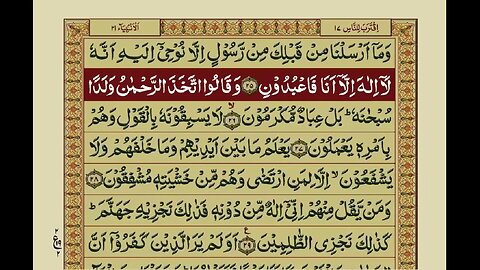 اِقْتَرَبَ لِلنَّاسِ ١٧ الْاَنْۢبِيَآء ٢١
وَمَاۤ اَرْسَلْنَا مِنْ قَبْلِكَ مِنْ رَّسُوْلٍ اِلَّا نُوْحِيْۤ اِلَيْهِ اَنَّهٗ
لَاۤ اِلٰهَ اِلَّاۤ اَنَا فَاعْبُدُوْنِ ۝٢٥ وَقَالُوا اتَّخَذَ الرَّحْمٰنُ وَلَدًا
سُبْحٰنَهٗ ؕ بَلْ عِبَادٌ مُّكْرَمُوْنَ ۝٢٦ۙ لَا يَسْبِقُوْنَهٗ بِالْقَوْلِ وَهُمْ
بِاَمْرِهٖ يَعْمَلُوْنَ ۝٢٧ يَعْلَمُ مَا بَيْنَ اَيْدِيْهِمْ وَمَا خَلْفَهُمْ وَلَا
يَشْفَعُوْنَ ۙ اِلَّا لِمَنِ ارْتَضٰى وَهُمْ مِّنْ خَشْيَتِهٖ مُشْفِقُوْنَ ۝٢٨
وَمَنْ يَّقُلْ مِنْهُمْ اِنِّيْۤ اِلٰهٌ مِّنْ دُوْنِهٖ فَذٰلِكَ نَجْزِيْهِ جَهَنَّمَ ؕ
كَذٰلِكَ نَجْزِي الظّٰلِمِيْنَ ۝٢٩ۧ اَوَلَمْ يَرَ الَّذِيْنَ كَفَرُوْۤا اَنَّ